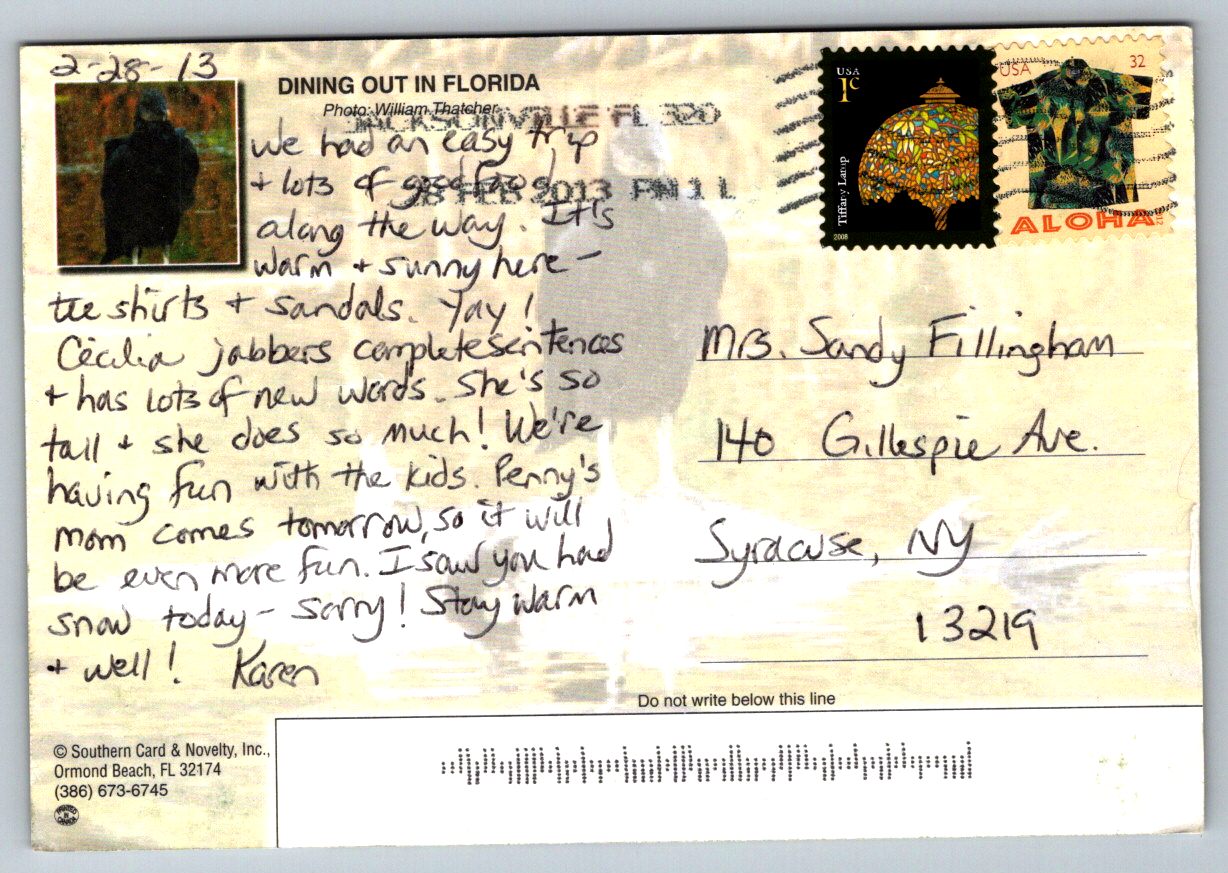 2-28-13
DINING OUT IN FLORIDA
Photo: William Thatcher
JACKSONVILLE FL 320
28 FEB 2013 PM 1 L
USA
1c
Tiffany Lamp
2008
USA
32
ALOHA
We had an easy trip
+ lots of good food
along the way. It's
warm + sunny here -
tee shirts + sandals. Yay!
Cecilia jabbers complete sentences
+ has lots of new words. She's so
tall + she does so much! We're
having fun with the kids. Penny's
mom comes tomorrow, so it will
be even more fun. I saw you had
snow today - sorry! Stay warm
+ well! Karen
Mrs. Sandy Fillingham
140 Gillespie Ave.
Syracuse, NY
13219
Do not write below this line
© Southern Card & Novelty, Inc.,
Ormond Beach, FL 32174
(386) 673-6745
PRINTED
IN
CANADA